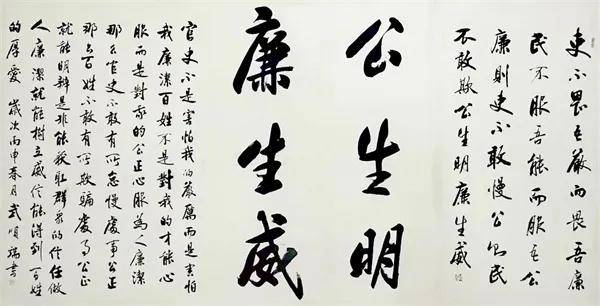 吏不畏吾嚴而畏吾廉
民不服吾能而服吾公
廉則吏不敢慢公則民
不敢欺公生明廉生威
公生明
廉生威
官吏不是害怕我的嚴厲而是害怕
我廉潔百姓不是對我的才能心
服而是對我的公正心服為人廉潔
那么官吏不敢有所怠慢處事公正
那么百姓不敢有所欺騙處事公正
就能明辨是非能获取群眾的信任做
人廉潔就能樹立威信能得到百姓
的厚愛 歲次丙申春月武順書